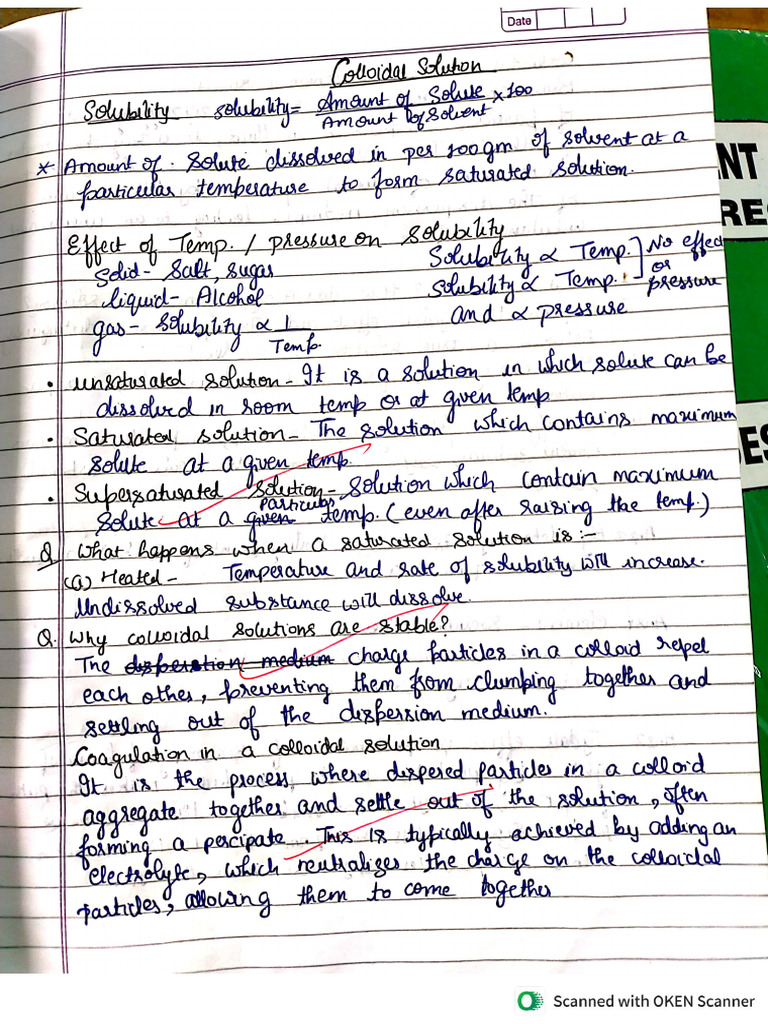 Date
Colloidal Solution
Solubility solubility = Amount of Solute × 100
Amount of Solvent
* Amount of. Solute dissolved in per 100gm of solvent at a
particular temperature to form saturated solution.
Effect of Temp. / pressure on solubility
Solid- Salt, sugar Solubility ∝ Temp. ] No effect
liquid- Alcohol Solubility ∝ Temp. or pressure
gas- Solubility ∝ 1 and ∝ pressure
Temp.
• unsaturated solution- It is a solution in which solute can be
dissolved in room temp or at given temp
• Saturated solution- The solution which contains maximum
solute at a given temp.
• Supersaturated solution- solution which contain maximum
particular
solute at a given temp. (even after raising the temp.)
Q What happens when a saturated solution is:-
(a) Heated- Temperature and rate of solubility will increase.
Undissolved substance will dissolve.
Q. Why colloidal solutions are stable?
The dispersion medium charge particles in a colloid repel
each other, preventing them from clumping together and
settling out of the dispersion medium.
Coagulation in a colloidal solution
It is the process where dispered particles in a colloid
aggregate together and settle out of the solution, often
forming a percipate. This is typically achieved by adding an
electrolyte, which neutralizes the charge on the colloidal
particles, allowing them to come together
NT
RES
ES
Scanned with OKEN Scanner